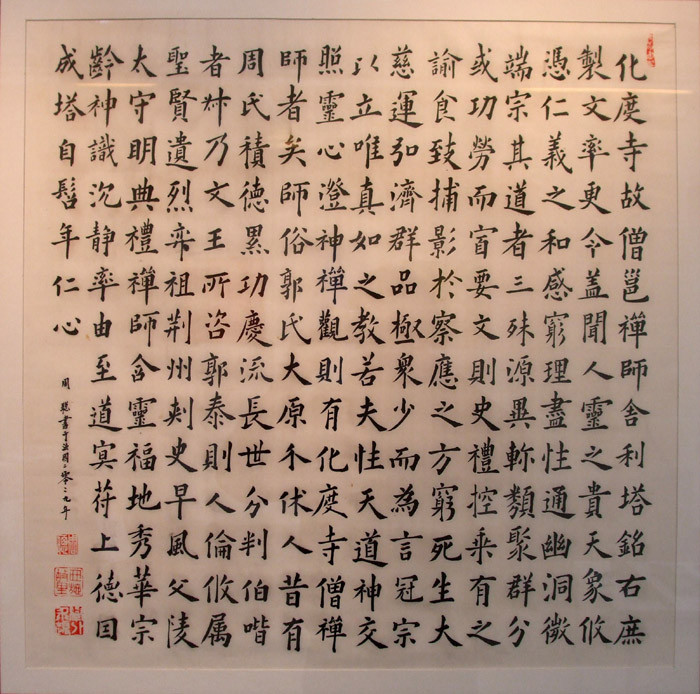 化度寺故僧邕禪師舍利塔銘右庶
製文率更令蓋聞人靈之貴天象攸
憑仁義之和感窮理盡性通幽洞微
端宗其道者三殊源異軫類聚群分
或功勞而要文則史禮控乘有之
諭食致捕影於察應之方窮死生大
慈運弘濟群品極衆少而為言冠宗
以立唯真如之教若夫性天道神交
照靈心澄神禪觀則有化度寺僧禪
師者矣師俗郭氏大原介休人昔有
周氏積德累功慶流長世分判伯喈
者乃文王所咨郭泰則人倫攸属
聖賢遺烈奕祖荆州刾史早風父陵
太守明典禮禪師含靈福地秀華宗
齡神識沉靜率由至道冥苻上德因
成塔自髫年仁心
周聪書于法國二零零九年